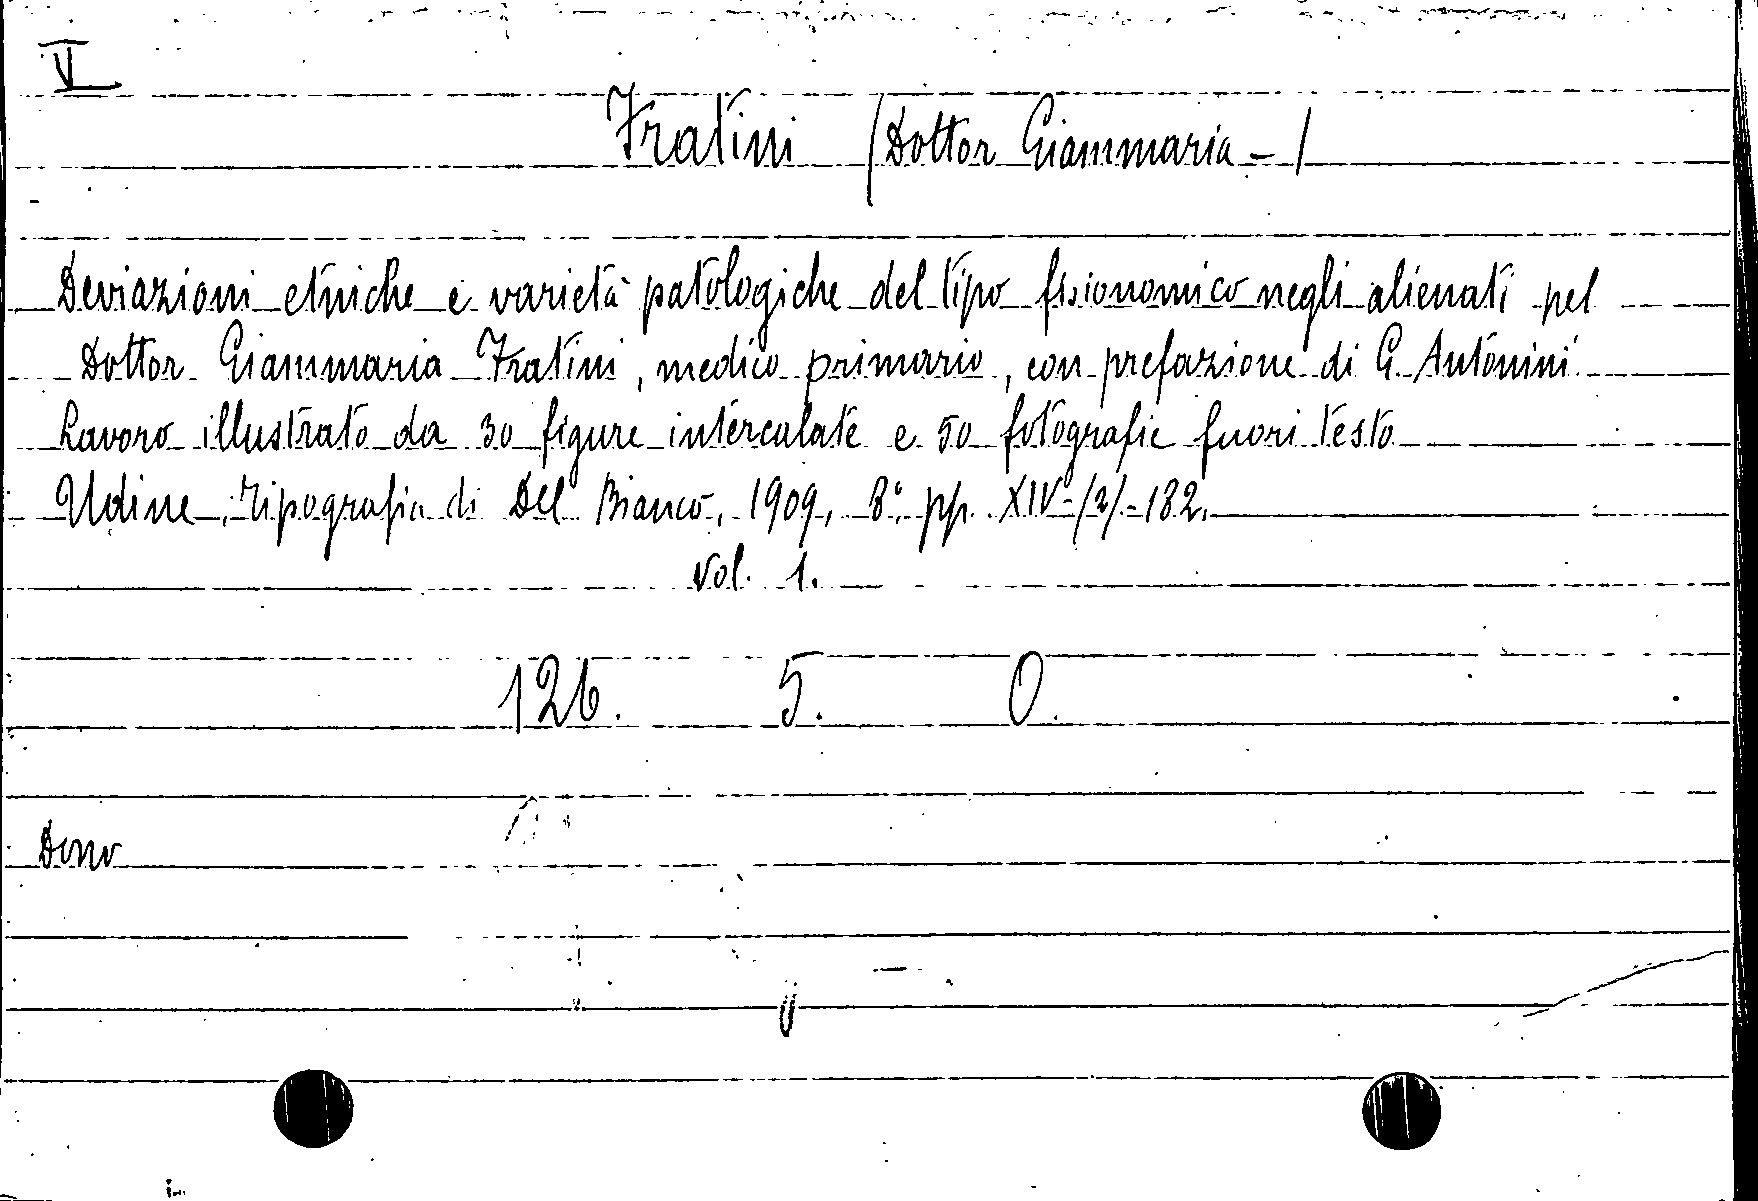 V
Fratini (Dottor Giammaria - )
Deviazioni etniche e varietà patologiche del tipo fisionomico negli alienati pel
Dottor Giammaria Fratini, medico primario, con prefazione di G. Antonini.
Lavoro illustrato da 30 figure intercalate e 50 fotografie fuori testo
Udine, Tipografia di Del Bianco, 1909, 8°. pp. XIV-(2)-182.
Vol. 1.
126. 5. O.
Dono